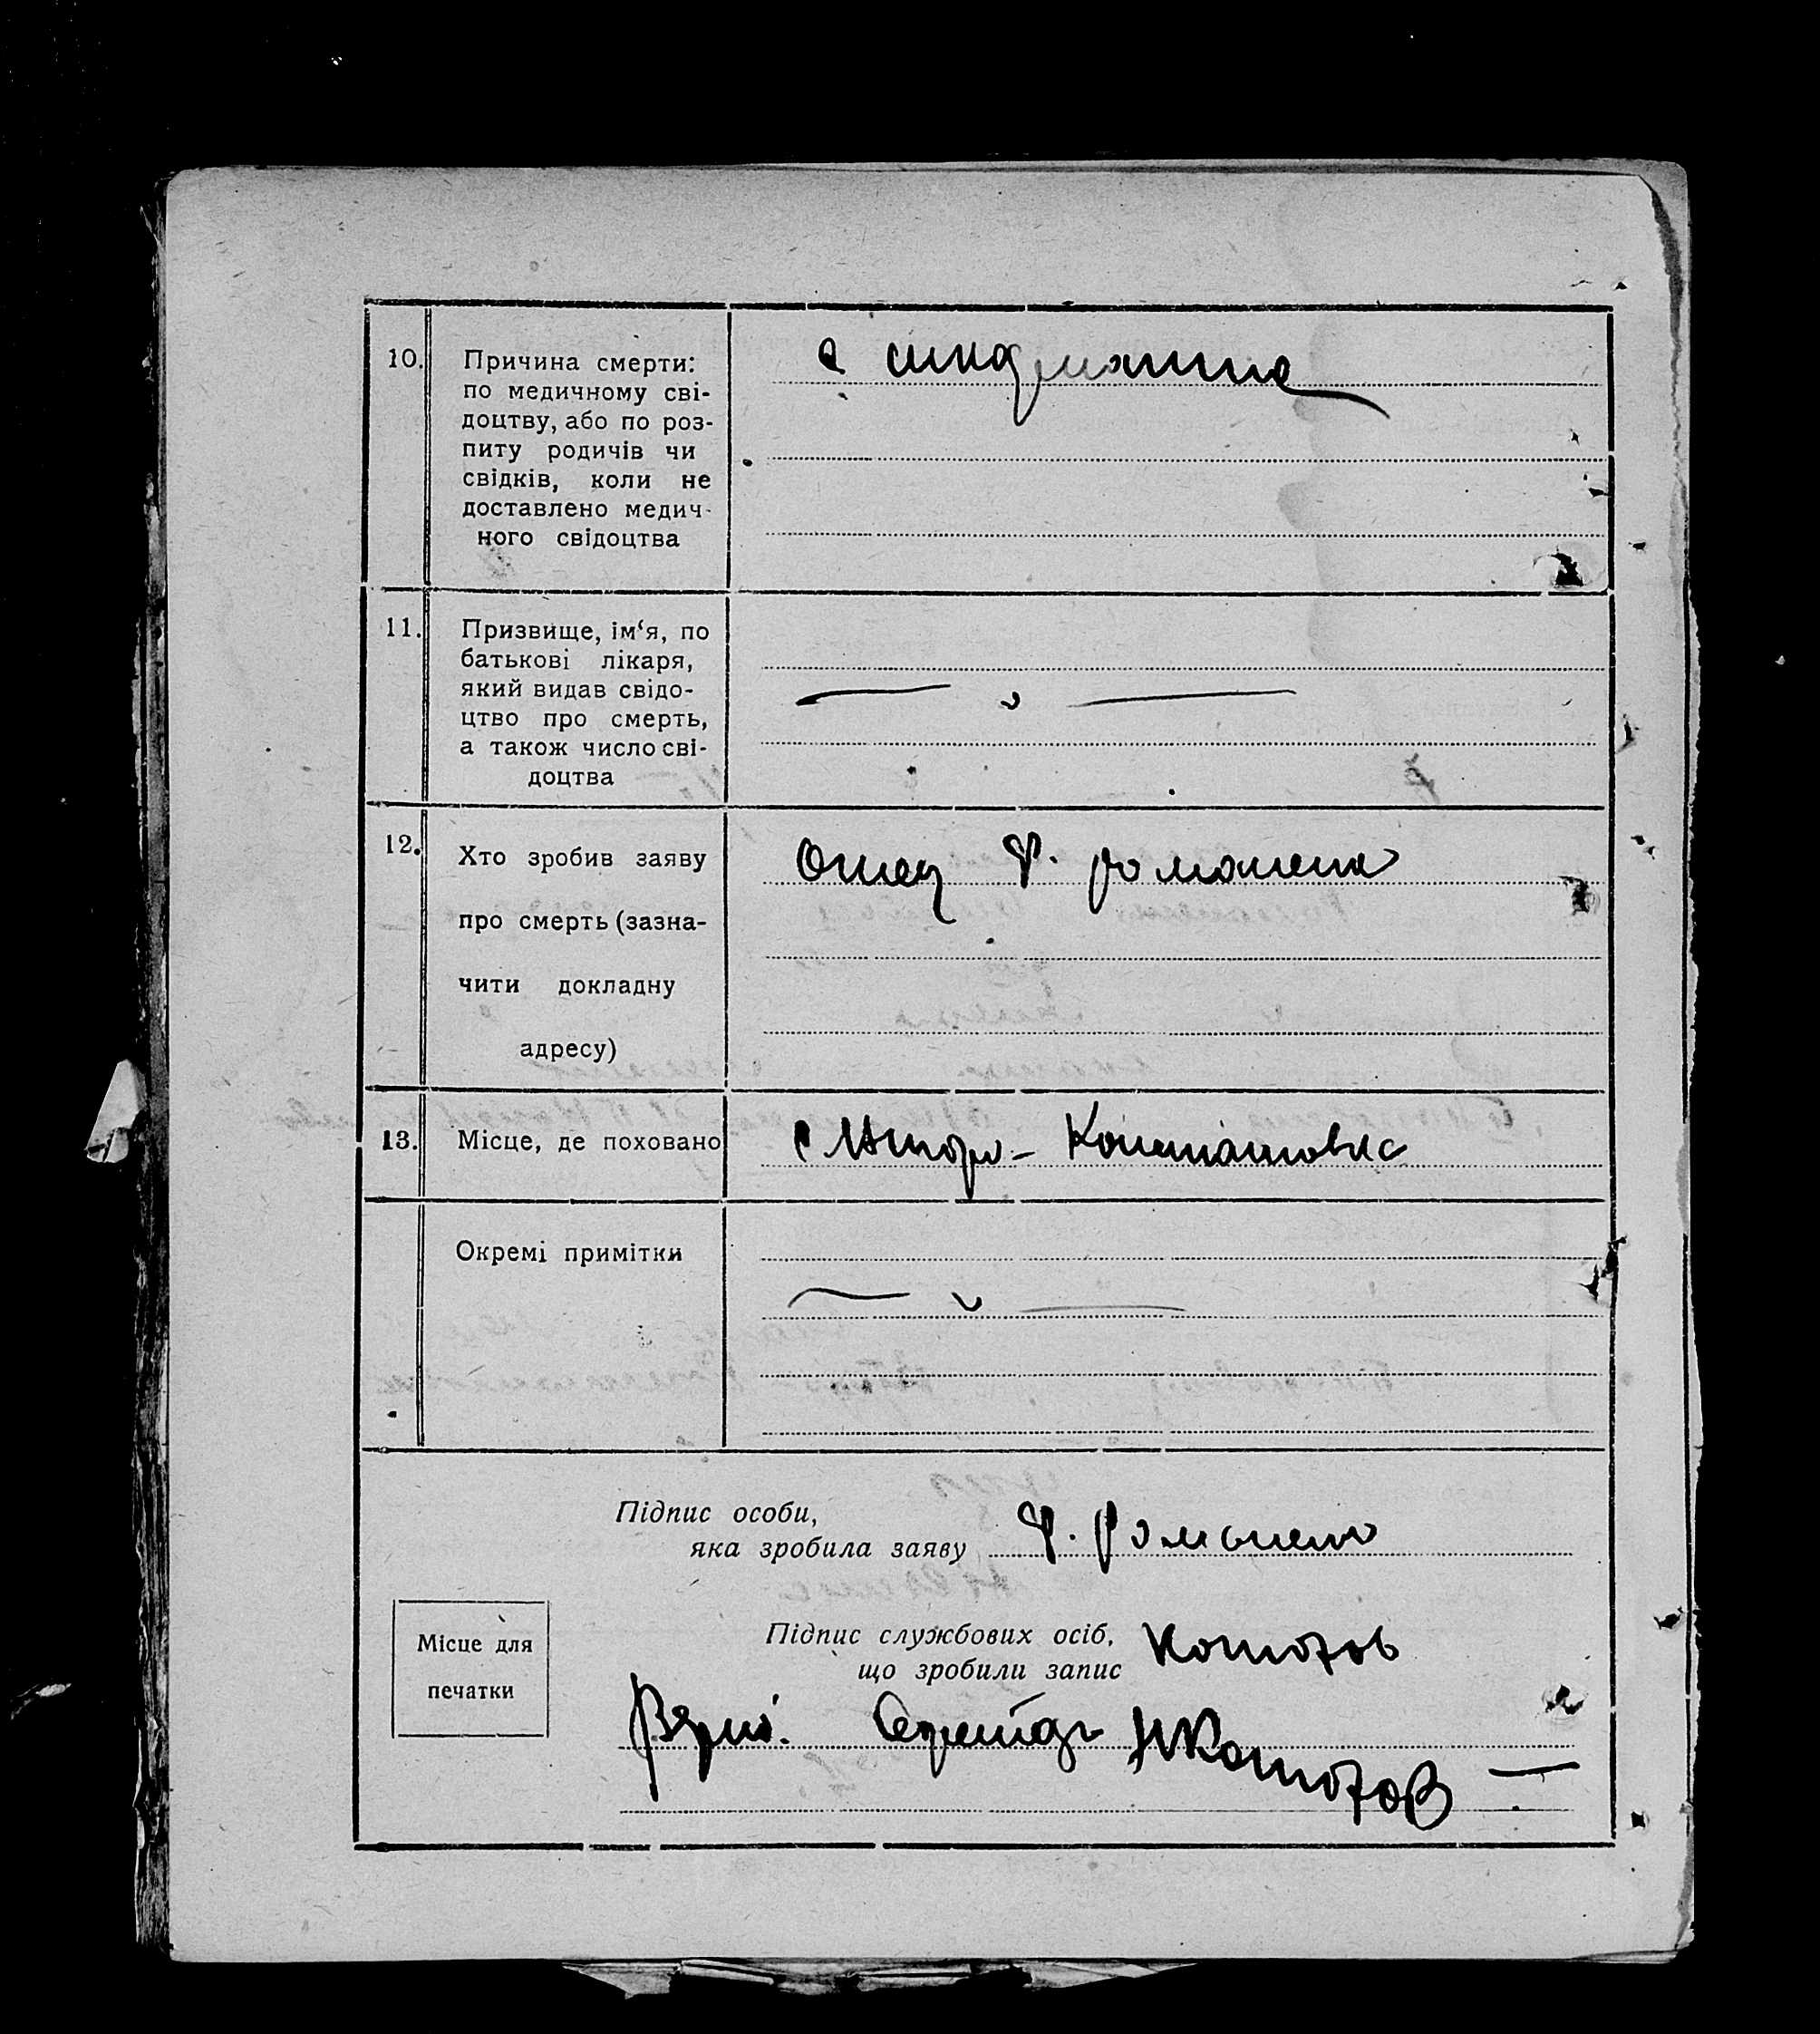 10. Причина смерти:
по медичному сві-
доцтву, або по роз-
питу родичів чи
свідків, коли не
доставлено медич-
ного свідоцтва
11. Призвище, ім‘я, по
батькові лікаря,
який видав свідо-
цтво про смерть,
а також число сві-
доцтва
12. Хто зробив заяву
про смерть (зазна-
чити докладну
адресу)
Отец Ф. Романенко
13. Місце, де поховано
Константовка
Окремі примітки
Підпис особи,
яка зробила заяву Ф. Романенко
Підпис службових осіб,
що зробили запис
Місце для
печатки